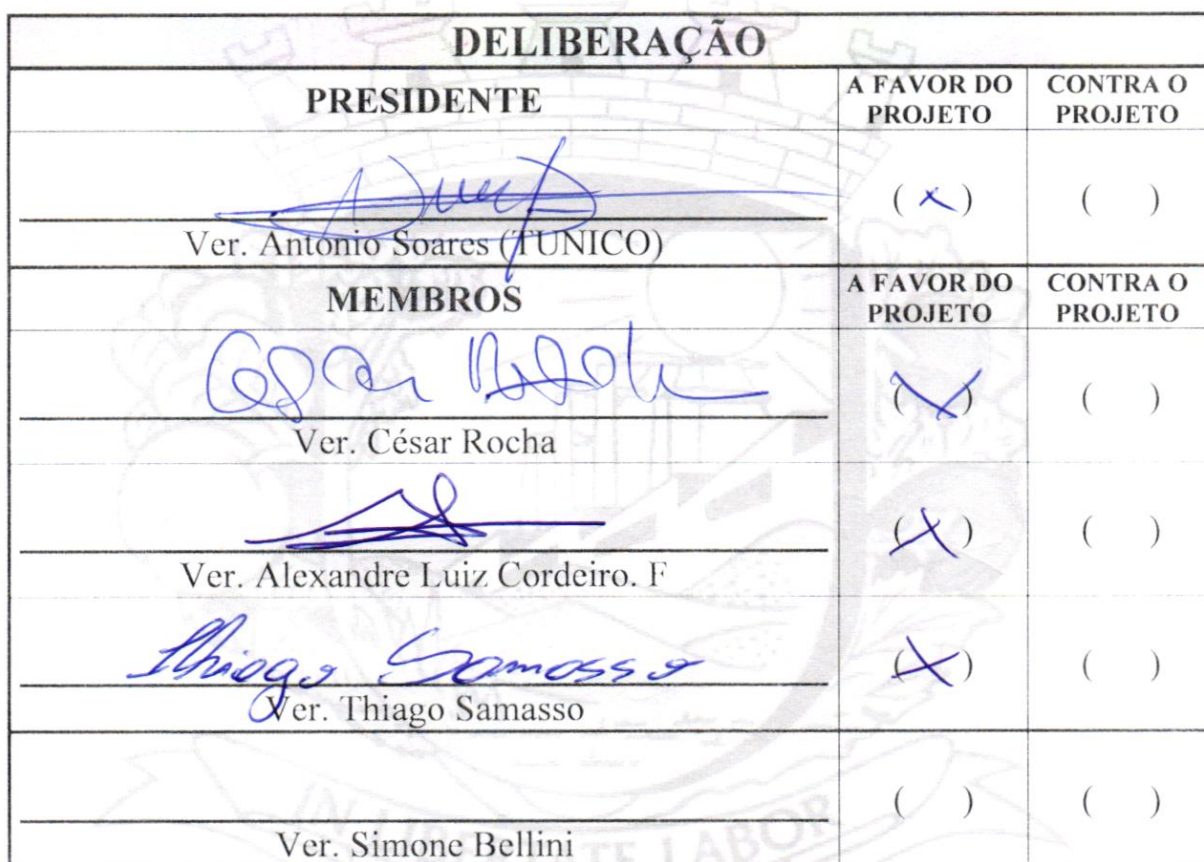 DELIBERAÇÃO
PRESIDENTE
A FAVOR DO PROJETO
CONTRA O PROJETO
( x )
( )
Ver. Antonio Soares (TUNICO)
MEMBROS
A FAVOR DO PROJETO
CONTRA O PROJETO
Cesar Rocha
(X)
( )
Ver. César Rocha
(X)
( )
Ver. Alexandre Luiz Cordeiro. F
Thiago Samasso
(X)
( )
Ver. Thiago Samasso
( )
( )
Ver. Simone Bellini
IN LIBERTATE LABOR